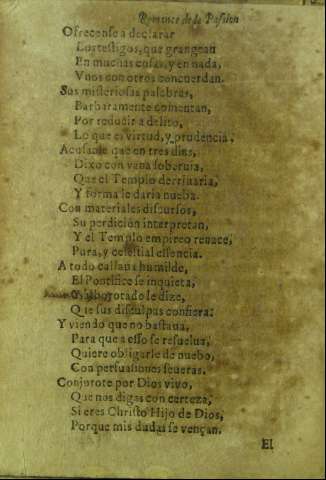 Romance de la Passion
Ofrecense a declarar
Los testigos, que grangean
En muchas cosas, y en nada,
Vnos con otros concuerdan.
Sus misteriosas palabras,
Barbaramente comentan,
Por reducir a delito,
Lo que es virtud, y prudencia.
Acusanle que en tres dias,
Dixo con vana soberuia,
Que el Templo derriuaria,
Y forma le daria nueba.
Con materiales discursos,
Su perdicion interpretan,
Y el Templo empireo renace,
Pura, y celestial essencia.
A todo callaua humilde,
El Pontifice se inquieta,
alborotado le dize,
Que sus disculpas confiera:
Y viendo que no bastaua,
Para que a esso se resuelua,
Quiere obligarle de nuebo,
Con persuasiones seueras.
Conjurote por Dios viuo,
Que nos digas con certeza,
Si eres Christo Hijo de Dios,
Porque mis dudas se vençan.
El